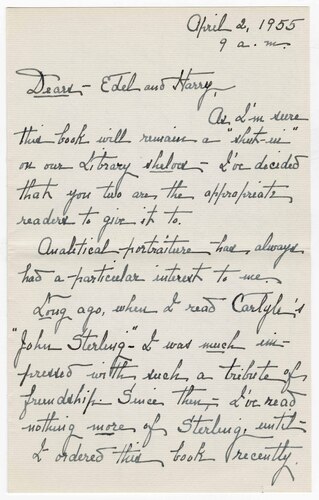 April 2, 1955
9 a.m.
Dears - Edel and Harry,
As I'm sure
this book will remain a "shut-in"
on our Library shelves - I've decided
that you two are the appropriate
readers to give it to.
Analitical portraiture has always
had a particular interest to me.
Long ago, when I read Carlyle's
"John Sterling" - I was much im-
pressed with such a tribute of
friendship. Since then - I've read
nothing more of Sterling, until
I ordered this book recently.